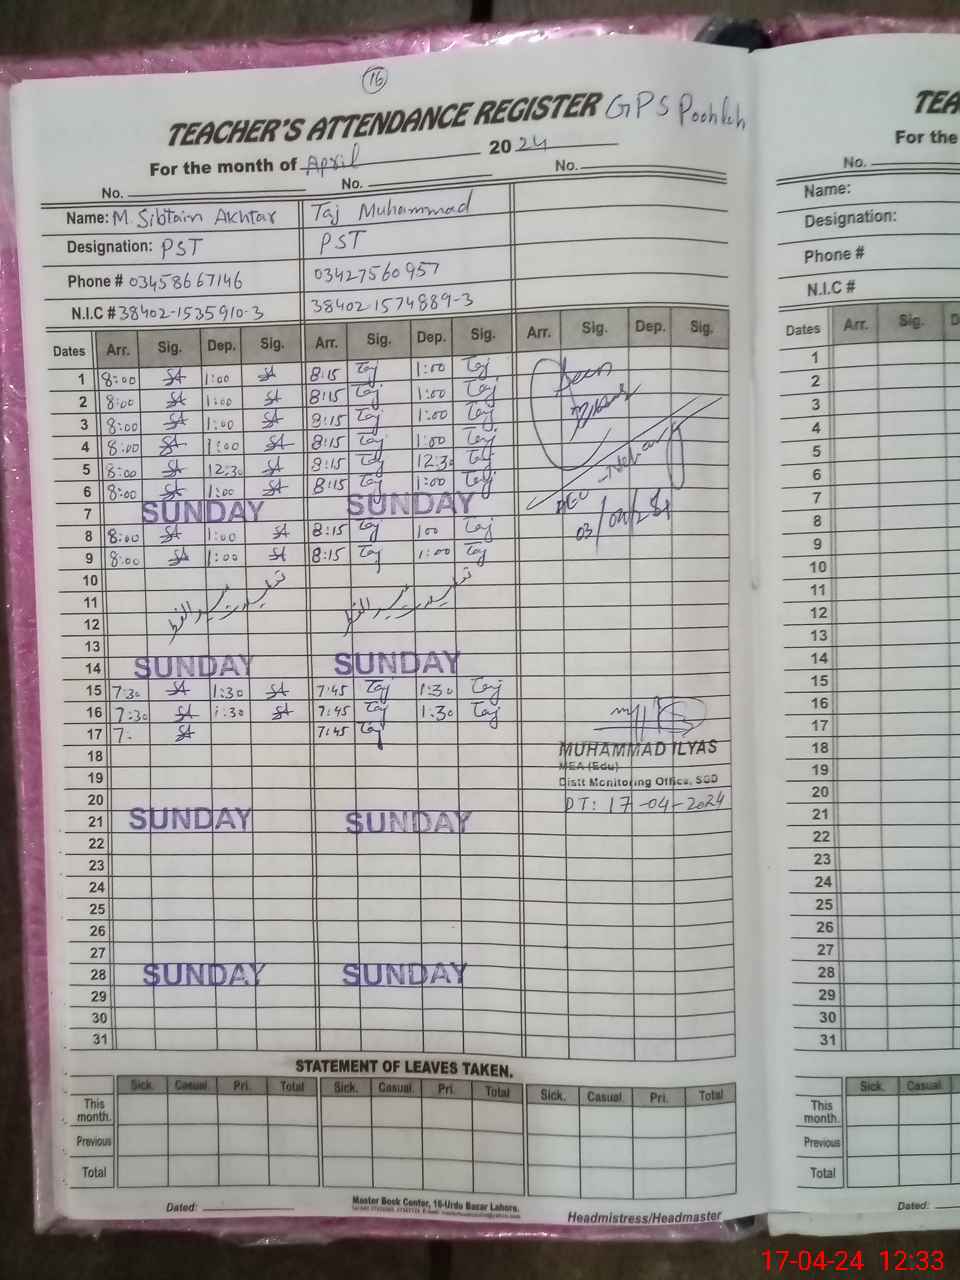 16
TEACHER'S ATTENDANCE REGISTER GPS
For the month of April 2024
No. No. No.
Name: M. Sibtain Akhtar Taj Muhammad
Designation: PST PST
Phone # 03458667146 03427560957
N.I.C # 38402-1535910-3 38402-1574889-3
Dates Arr. Sig. Dep. Sig. Arr. Sig. Dep. Sig. Arr. Sig. Dep. Sig.
1 8:00 SA 1:00 SA 8:15 Taj 1:00 Taj
2 8:00 SA 1:00 SA 8:15 Taj 1:00 Taj
3 8:00 SA 1:00 SA 8:15 Taj 1:00 Taj
4 8:00 SA 1:00 SA 8:15 Taj 1:00 Taj
5 8:00 SA 12:30 SA 8:15 Taj 12:30 Taj
6 8:00 SA 1:00 SA 8:15 Taj 1:00 Taj
7 SUNDAY SUNDAY
8 8:00 SA 1:00 SA 8:15 Taj 1:00 Taj
9 8:00 SA 1:00 SA 8:15 Taj 1:00 Taj
10
11
12
13
14 SUNDAY SUNDAY
15 7:30 SA 1:30 SA 7:45 Taj 1:30 Taj
16 7:30 SA 1:30 SA 7:45 Taj 1:30 Taj
17 7: SA 7:45 Taj
MUHAMMAD ILYAS
18
MEA (Edu)
19
Distt Monitoring Office, SGD
20 DT: 17-04-2024
21 SUNDAY SUNDAY
22
23
24
25
26
27
28 SUNDAY SUNDAY
29
30
31
STATEMENT OF LEAVES TAKEN.
Sick. Casual. Pri. Total Sick. Casual. Pri. Total Sick. Casual. Pri. Total
This month.
Previous
Total
Dated:
Master Book Center, 16-Urdu Bazar Lahore.
Headmistress/Headmaster
TEA
For the
No.
Name:
Designation:
Phone #
N.I.C #
Dates Arr. Sig. D
1
2
3
4
5
6
7
8
9
10
11
12
13
14
15
16
17
18
19
20
21
22
23
24
25
26
27
28
29
30
31
Sick. Casual
This month.
Previous
Total
Dated:
17-04-24 12:33